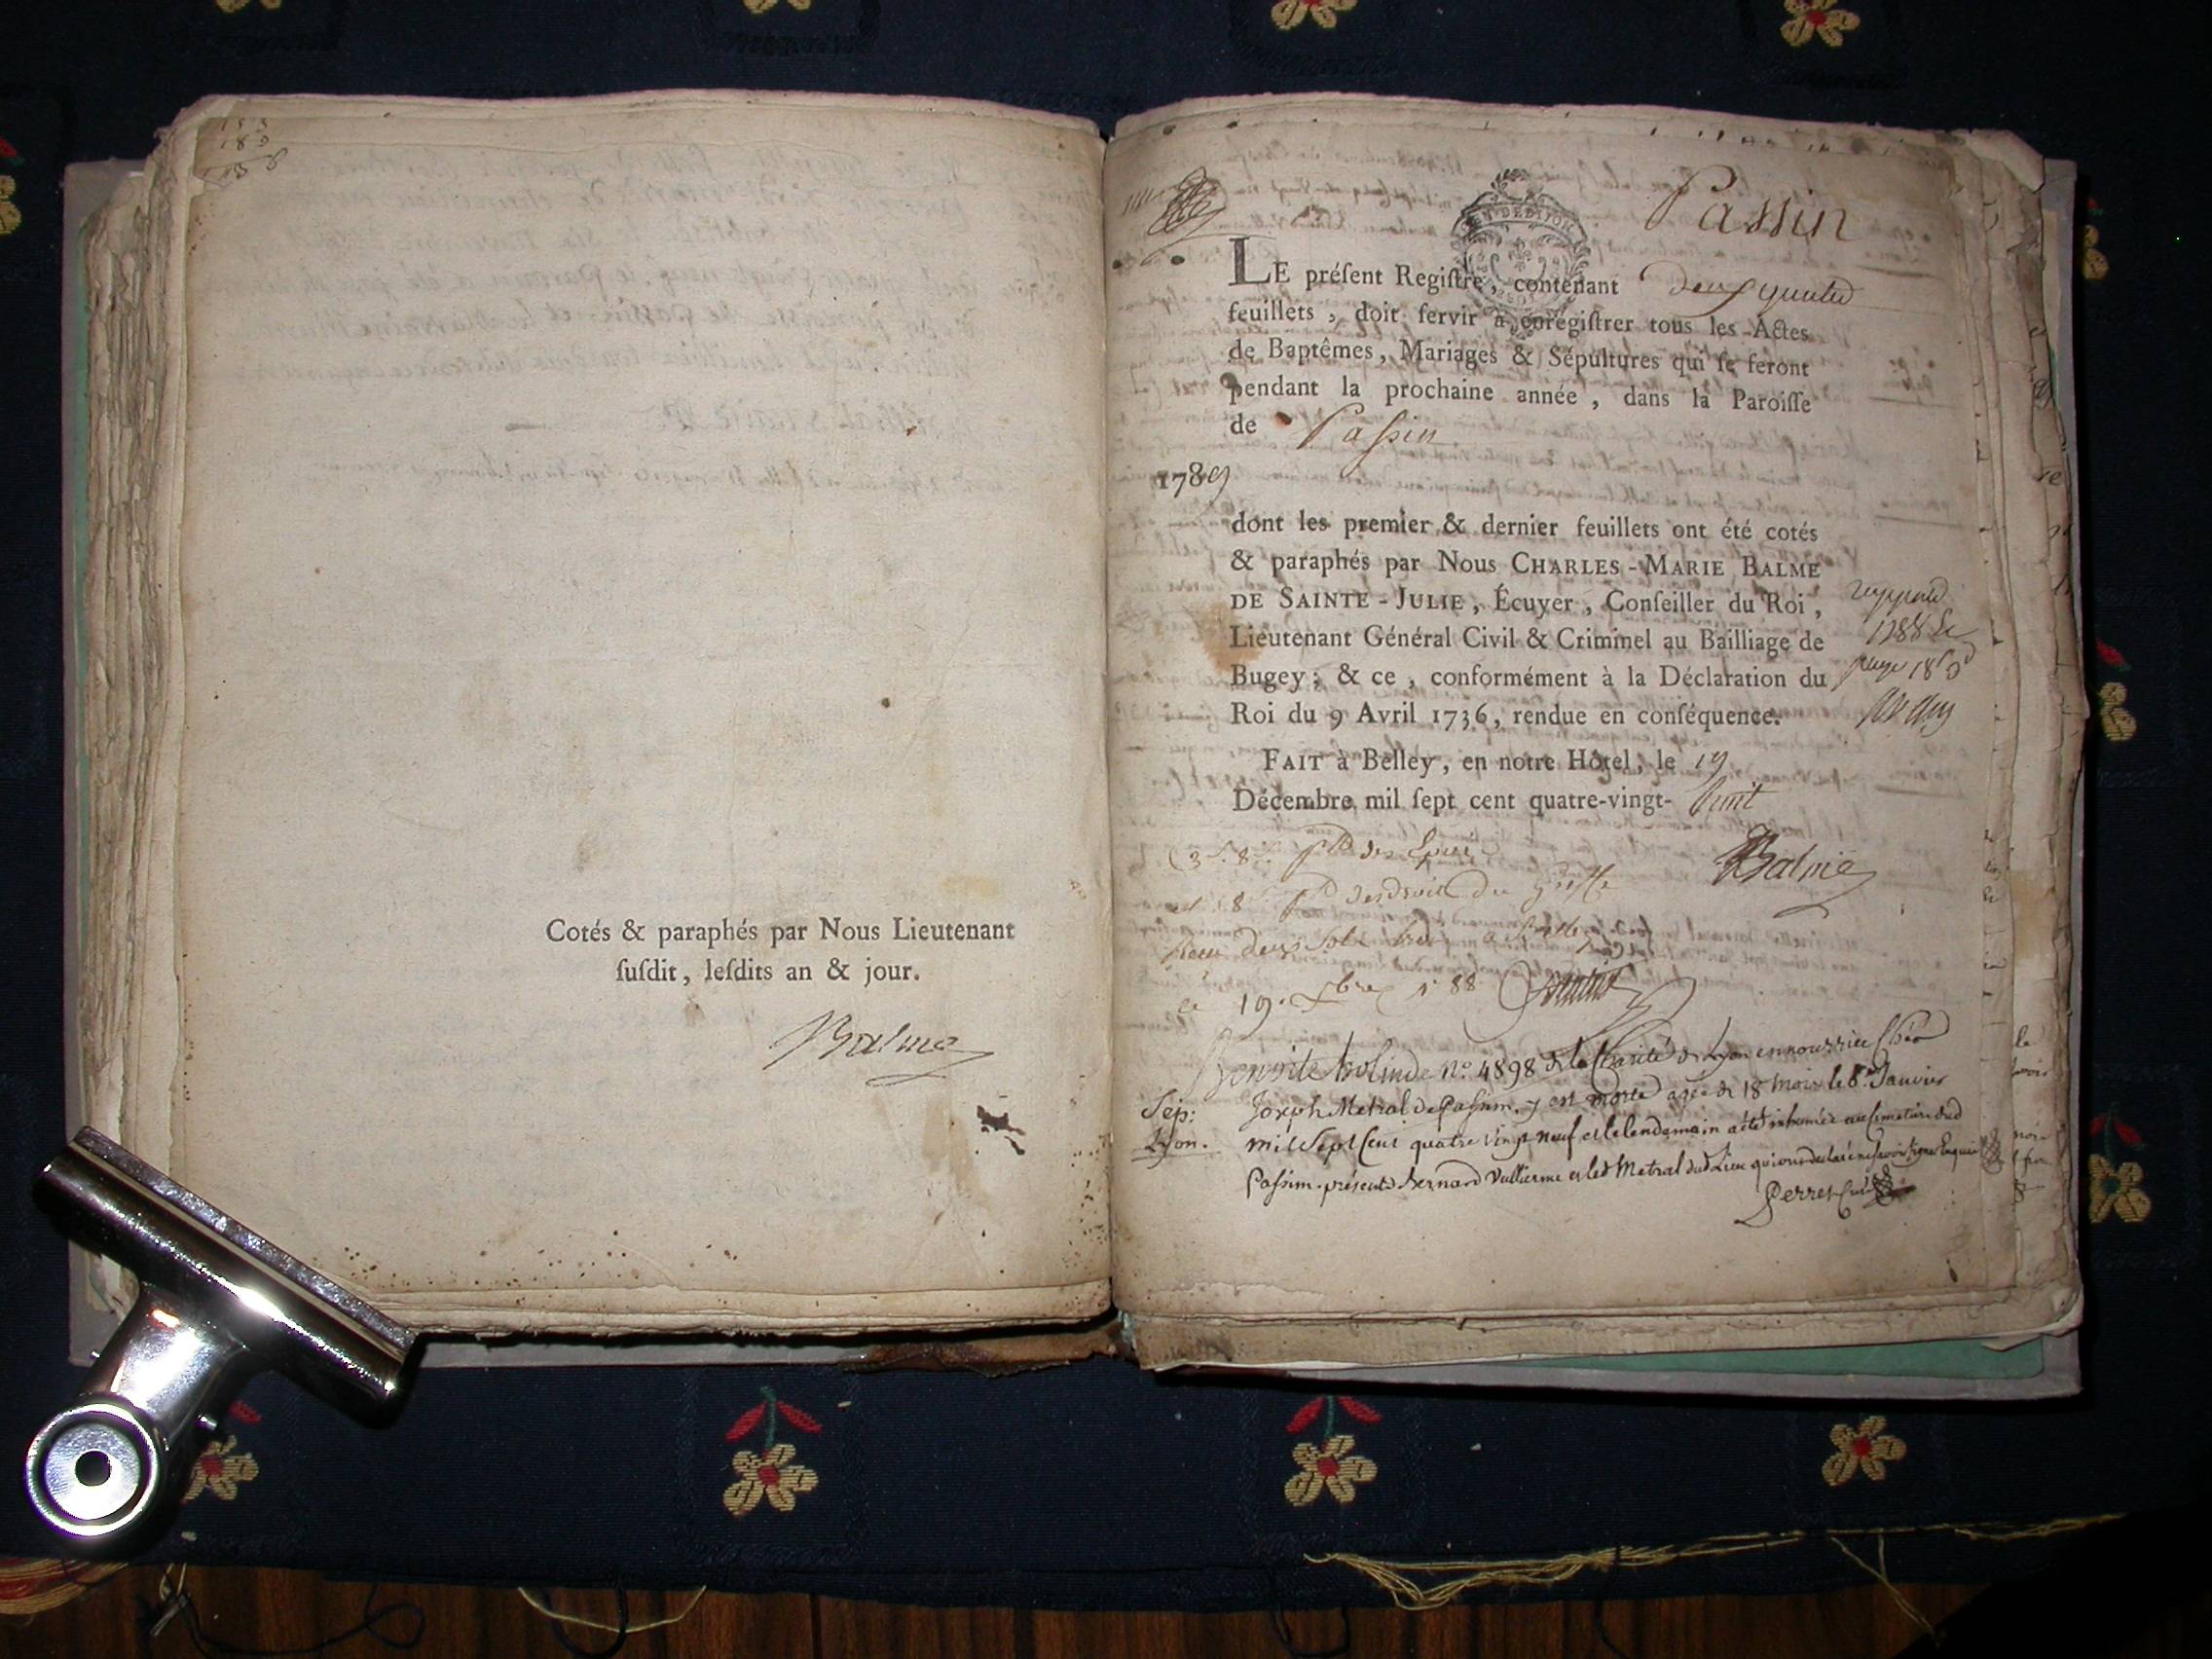 Cotés & paraphés par Nous Lieutenant
ſuſdit, leſdits an & jour.
Balme
Passin
LE préſent Regiſtre, contenant
feuillets, doit ſervir à enregiſtrer tous les Actes
de Baptêmes, Mariages & Sépultures qui ſe feront
pendant la prochaine année, dans la Paroiſſe
de Paſsin
1789
dont les premier & dernier feuillets ont été cotés
& paraphés par Nous CHARLES-MARIE BALME
DE SAINTE-JULIE, Écuyer, Conſeiller du Roi,
Lieutenant Général Civil & Criminel au Bailliage de
Bugey; & ce, conformément à la Déclaration du
Roi du 9 Avril 1736, rendue en conſéquence.
FAIT à Belley, en notre Hôtel, le 19
Décembre mil ſept cent quatre-vingt-huit
Balme
ce 19. Xbre 1788
Benoite n.o 4898 de la Charité de Lyon en nourrice chés
Sép: Joseph Metral de Paſsin, y est morte agée de 18 mois le 8e Janvier
Lyon. mil sept cent quatre vingt neuf et le lendemain a été inhumée au cimetière dud
Paſsin. présents Bernard Vullierme et led Metral dud Lieu qui ont déclaré ne savoir signer enquis
Perret Curé